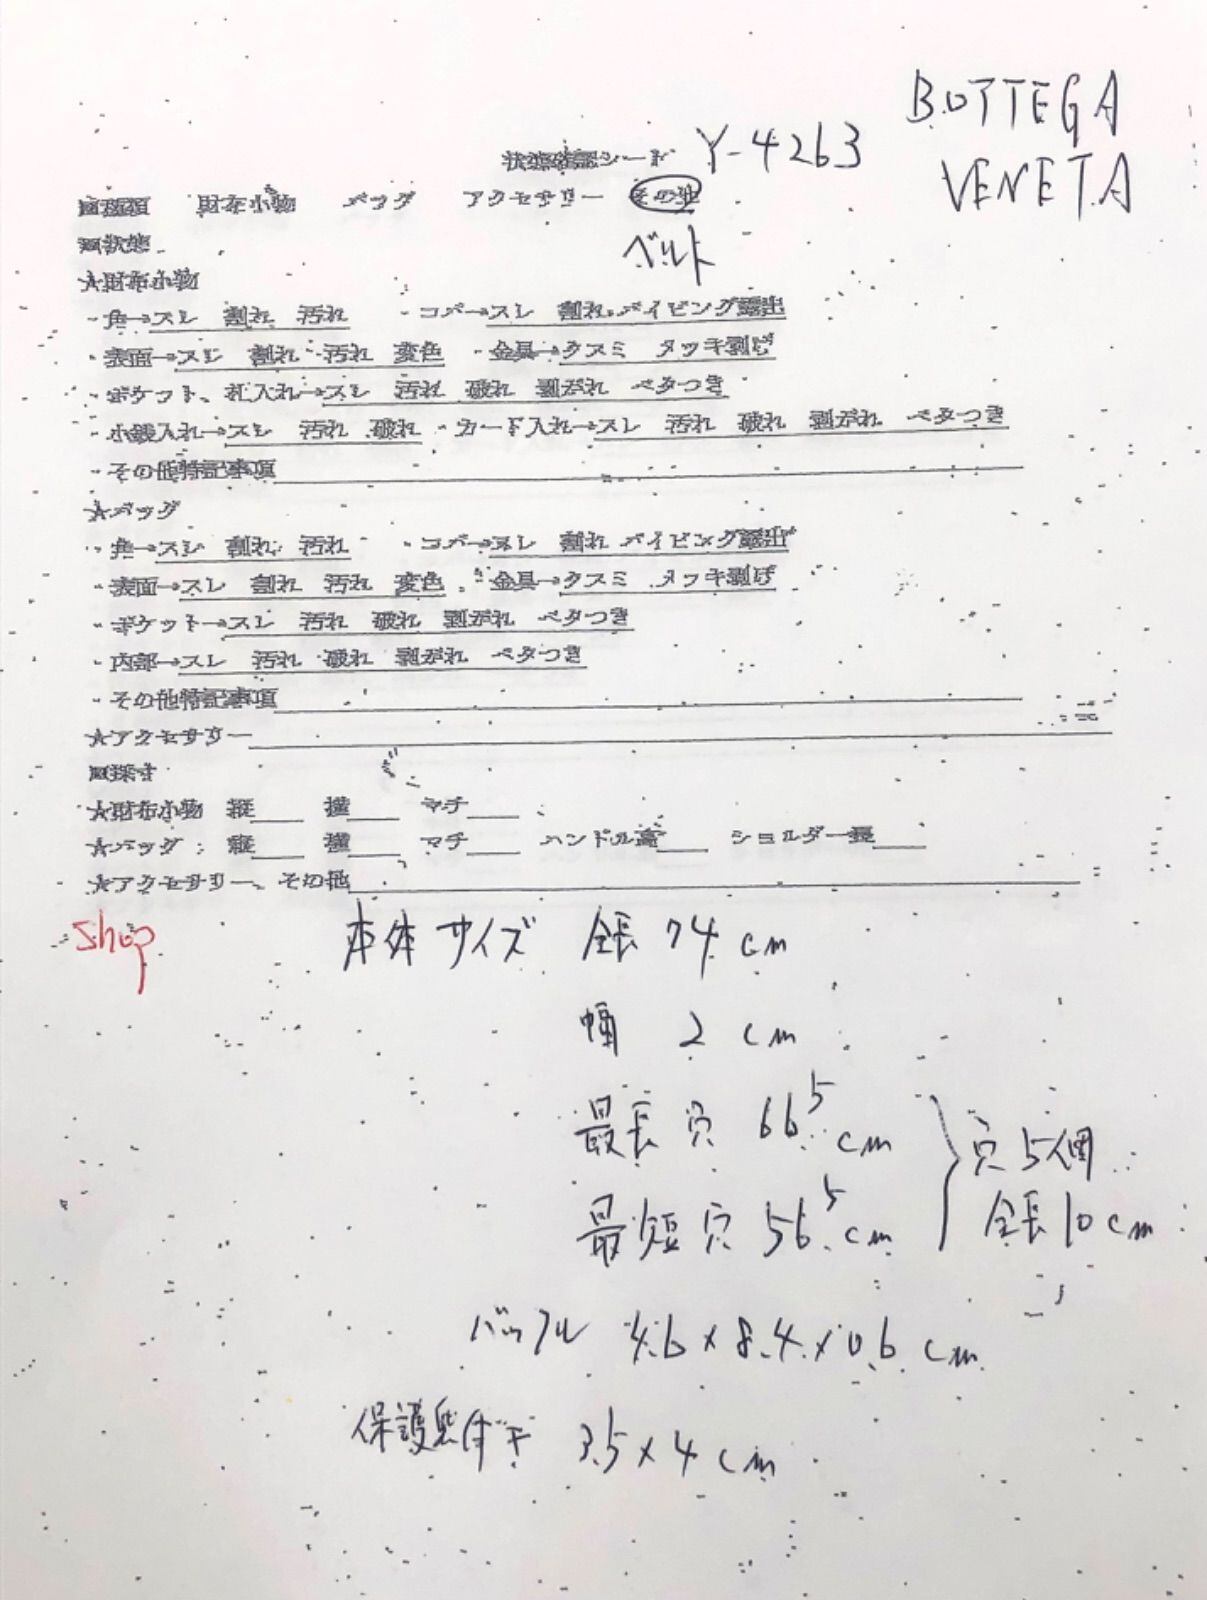 BOTTEGA
VENETA
状態確認シート Y-4263
■種類 財布小物 バッグ アクセサリー その他
ベルト
■状態
★財布小物
・角→スレ 割れ 汚れ ・コバ→スレ 割れ パイピング露出
・表面→スレ 割れ 汚れ 変色 ・金具→クスミ メッキ剥げ
・ポケット、札入れ→スレ 汚れ 破れ 剥がれ ベタつき
・小銭入れ→スレ 汚れ 破れ ・カード入れ→スレ 汚れ 破れ 剥がれ ベタつき
・その他特記事項
★バッグ
・角→スレ 割れ 汚れ ・コバ→スレ 割れ パイピング露出
・表面→スレ 割れ 汚れ 変色 ・金具→クスミ メッキ剥げ
・ポケット→スレ 汚れ 破れ 剥がれ ベタつき
・内部→スレ 汚れ 破れ 剥がれ ベタつき
・その他特記事項
★アクセサリー
■採寸
★財布小物 縦 横 マチ
★バッグ 縦 横 マチ ハンドル高 ショルダー長
★アクセサリー、その他
shop
本体サイズ 全長 74cm
幅 2cm
最長穴 66⁵cm
最短穴 56⁵cm
穴5個
全長10cm
バックル 4.6×8.4×0.6cm
保護 3.5×4cm